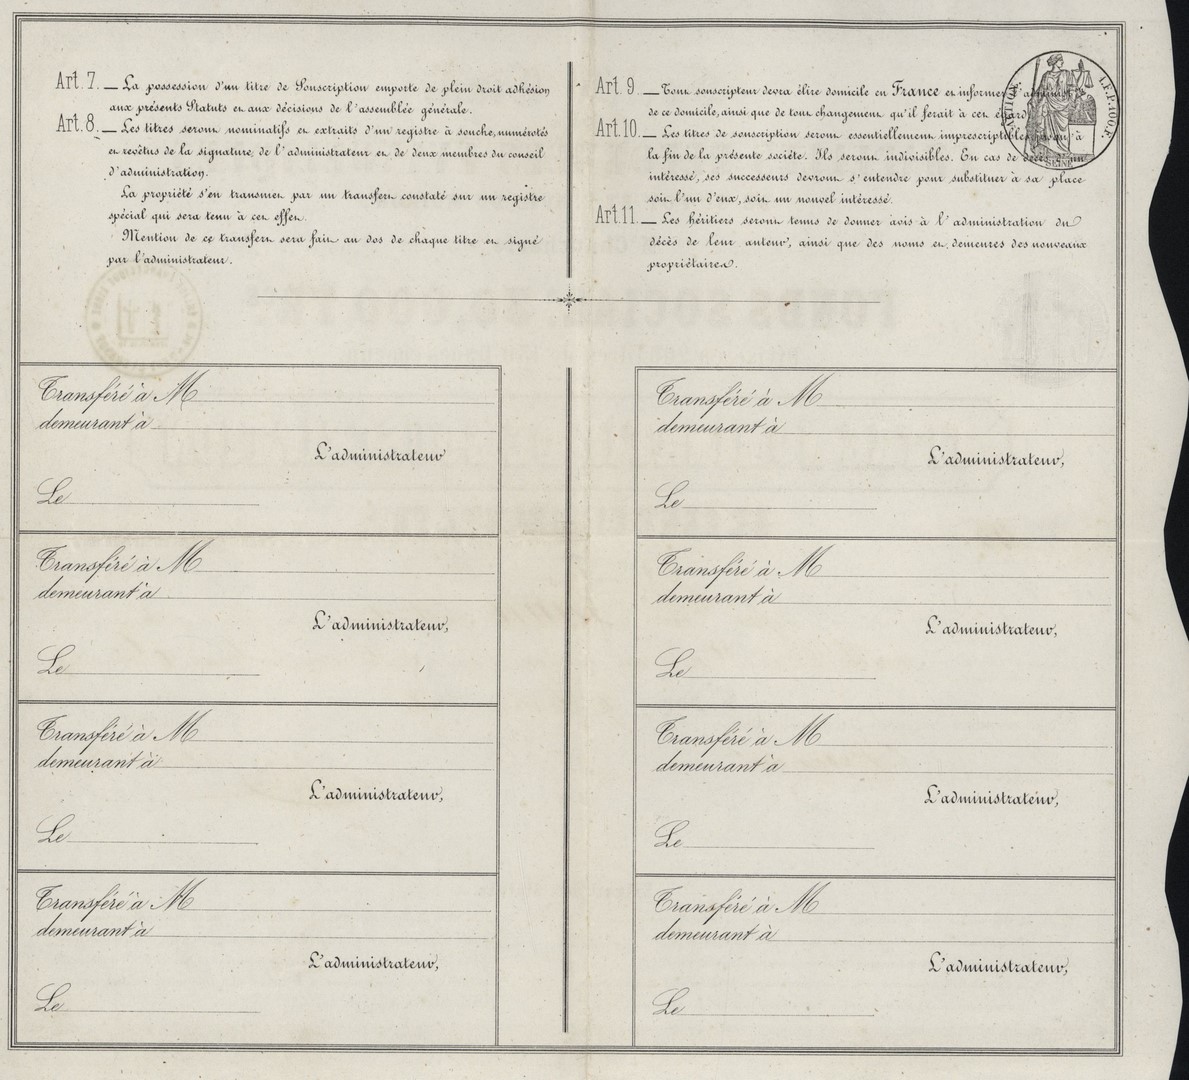 Art. 7. — La possession d'un titre de Souscription emporte de plein droit adhésion
aux présents Statuts et aux décisions de l'assemblée générale.
Art. 8. — Les titres seront nominatifs et extraits d'un registre à souche, numérotés
et revêtus de la signature, de l'administrateur et de deux membres du conseil
d'administration.
La propriété s'en transmet par un transfert constaté sur un registre
spécial qui sera tenu à cet effet.
Mention de ce transfert sera fait au dos de chaque titre et signé
par l'administrateur.
Art. 9. — Tout souscripteur devra élire domicile en France et informer l'administ
de ce domicile, ainsi que de tout changement qu'il ferait à cet égard
Art. 10. — Les titres de souscription seront essentiellement imprescriptibles jusqu'à
la fin de la présente société. Ils seront indivisibles. En cas de décès d'un
intéressé, ses successeurs devront s'entendre pour substituer à sa place
soit l'un d'eux, soit un nouvel intéressé.
Art. 11. — Les héritiers seront tenus de donner avis à l'administration du
décès de leur auteur, ainsi que des noms et demeures des nouveaux
propriétaires.
SEINE
Transféré à M
demeurant à
L'administrateur
Le
Transféré à M
demeurant à
L'administrateur,
Le
Transféré à M
demeurant à
L'administrateur,
Le
Transféré à M
demeurant à
L'administrateur,
Le
Transféré à M
demeurant à
L'administrateur,
Le
Transféré à M
demeurant à
L'administrateur,
Le
Transféré à M
demeurant à
L'administrateur,
Le
Transféré à M
demeurant à
L'administrateur,
Le